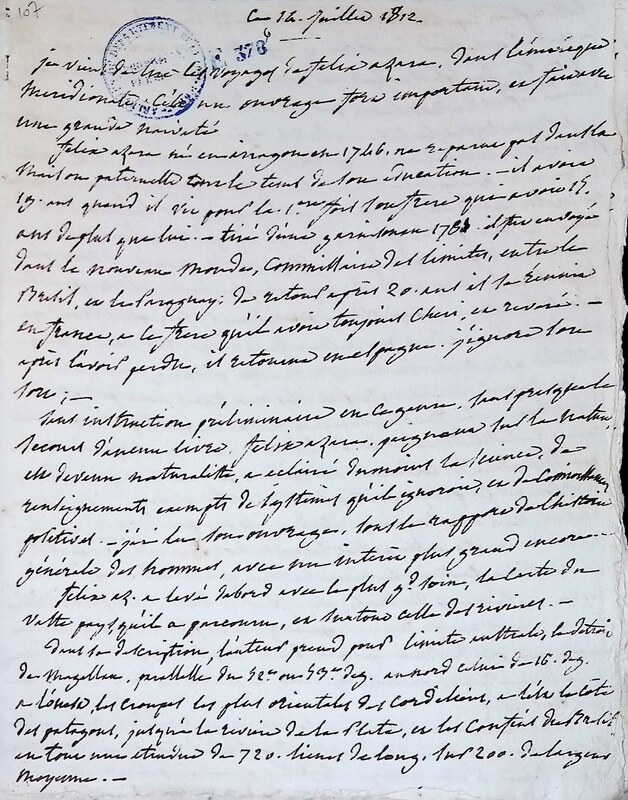 107
Ce 14. Juillet 1812.
378
je viens de lire les voyages de felix azara, dans l'émérique
Meridionale. C'est un ouvrage fort important, et fait avec
une grande naiveté
felix azara né en arragon en 1746. ne fut pas dans la
Maison paternelle le tems de son éducation. - il avoit
19. ans quand il vit pour la 1.ere fois son frere qui avoit 15.
ans de plus que lui. - tiré d'une garnison en 1781. il fut envoyé
dans le nouveau Monde, Commissaire des limites, entre le
Bresil, et le Paraguay; de retour après 20. ans il se réunit
en france, a ce frere qu'il avoit toujours cheri, et reveré. -
après l'avoir perdu, il retourna en espagne. j'ignore son
sort; -
Sans instruction préliminaire en ce genre, sans presque le
secours d'aucun livre. felix azara, sur la nature
est devenu naturaliste, a eclairé du moins la science, de
renseignements exempts de systèmes qu'il ignoroit, et de
politiques. - j'ai lu son ouvrage, sous le rapport de l'histoire
générale des hommes, avec un interêt plus grand encore -
felix az. a levé d'abord avec le plus g.d soin, la carte du
vaste pays qu'il a parcouru, et surtout celle des rivieres. -
dans sa description, l'auteur prend pour limite australe, le détroit
de Magellan, parallelle du 52.me ou 53.me deg. au nord celui de 16. deg.
a l'ouest, les croupes les plus orientales des cordelieres, a l'est la côte
des patagons, jusqu'à la riviere de la Plata, et les confins du Bresil.
en tout une etendue de 720. lieues de long, sur 200. de largeur
moyenne. -